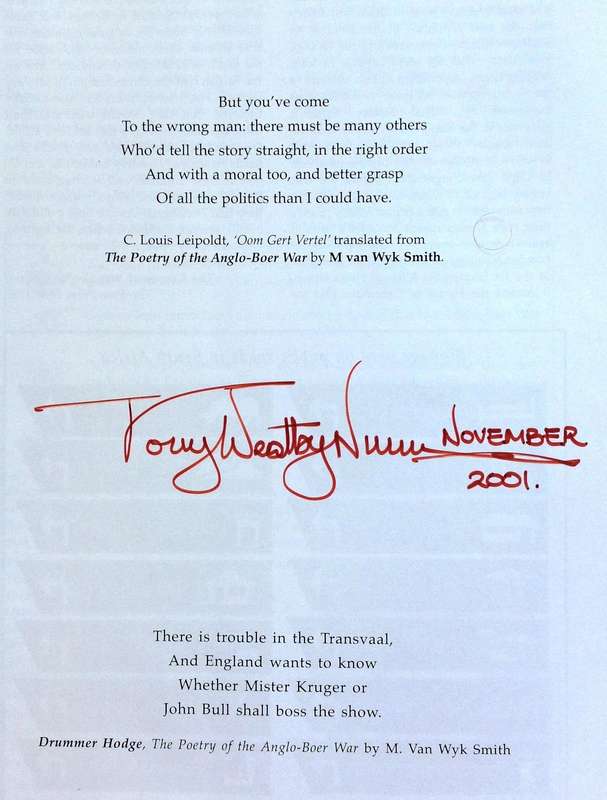 But you've come
To the wrong man: there must be many others
Who'd tell the story straight, in the right order
And with a moral too, and better grasp
Of all the politics than I could have.
C. Louis Leipoldt, 'Oom Gert Vertel' translated from
The Poetry of the Anglo-Boer War by M van Wyk Smith.
Tony Westby Nunn NOVEMBER
2001.
There is trouble in the Transvaal,
And England wants to know
Whether Mister Kruger or
John Bull shall boss the show.
Drummer Hodge, The Poetry of the Anglo-Boer War by M. Van Wyk Smith